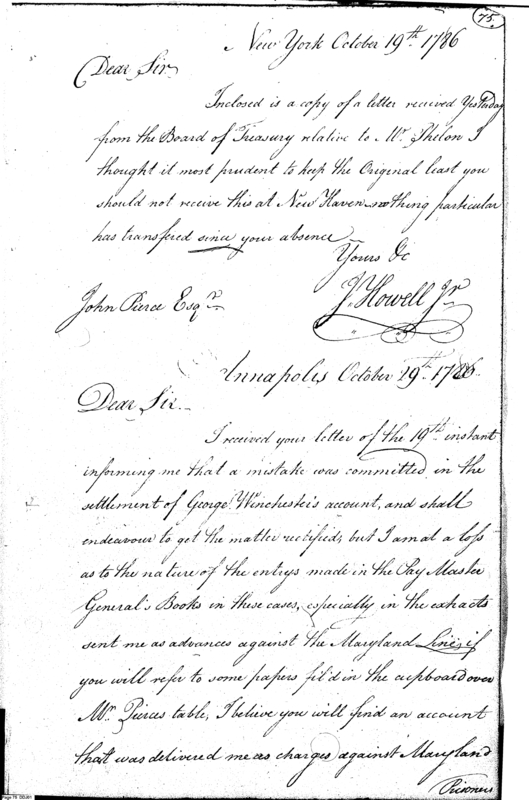 75.
New York October 19th. 1786
Dear Sir
Inclosed is a copy of a letter received Yesterday
from the Board of Treasury relative to Mr. Phelon I
thought it most prudent to keep the Original least you
should not receive this at New Haven nothing particular
has transfered since your absence
Yours &c
J. Howell Jr.
John Pierce Esqr.
Annapolis October 19th. 1786.
Dear Sir.
I received your letter of the 19th instant
informing me that a mistake was committed in the
settlement of George Winchester's account, and shall
endeavour to get the matter rectified; but I am at a loss
as to the nature of the entrys made in the Pay Master
General's Books in these cases, especially in the extracts
sent me as advances against the Maryland Line; if
you will refer to some papers fil'd in the cupboard over
Mr. Pierces table, I believe you will find an account
that was delivered me as charges against Maryland
Prisoners